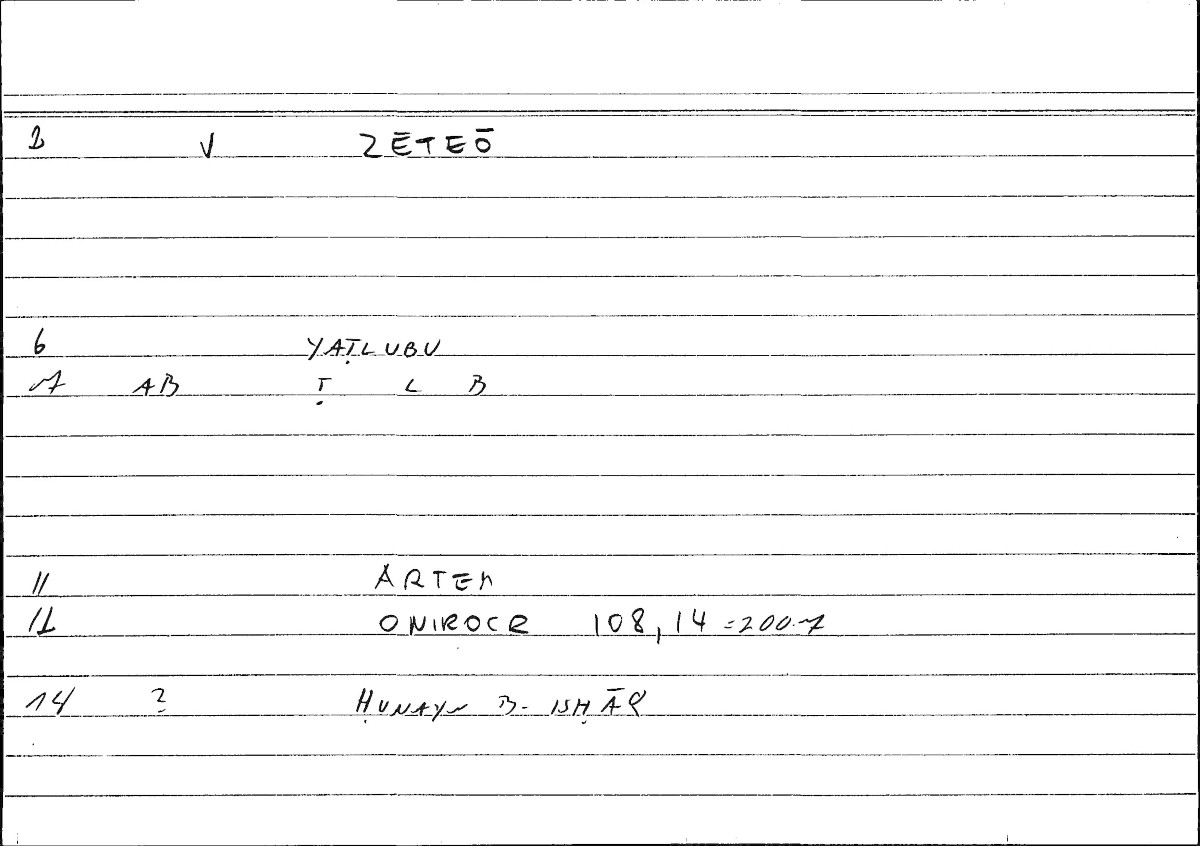 2 V ZĒTEŌ
6 YAṬLUBU
7 AB Ṭ L B
11 ARTEM
12 ONIROCR 108,14 =200.7
14 2 ḤUNAYN B. ISḤĀQ